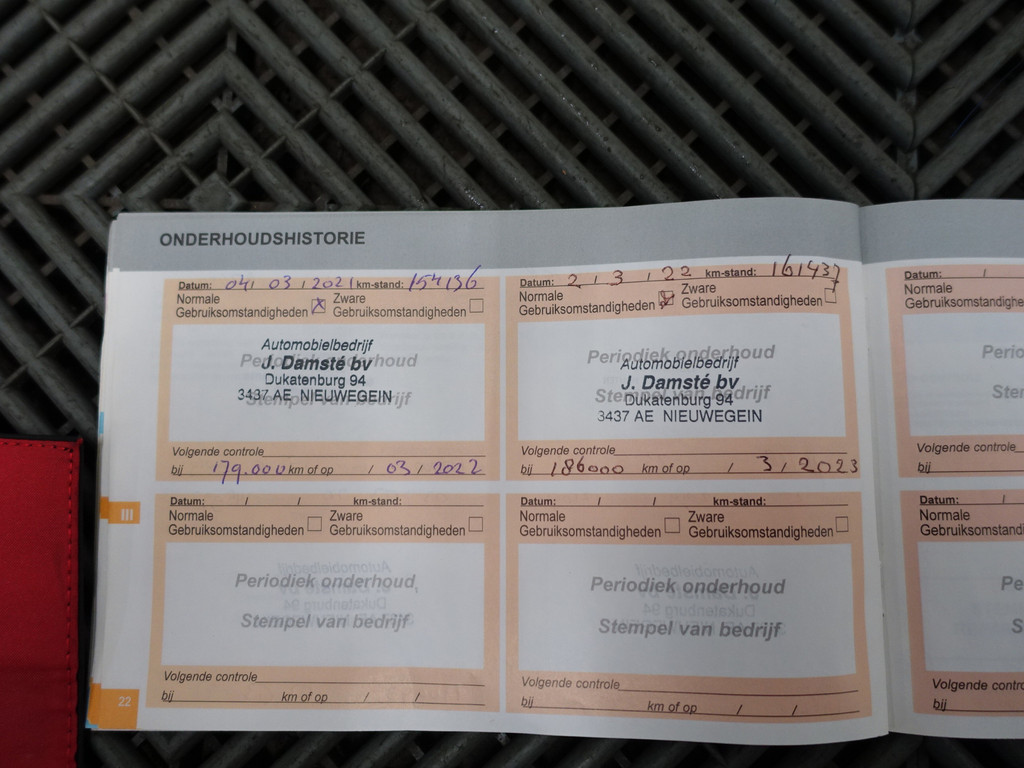 ONDERHOUDSHISTORIE
Datum: 04 / 03 / 2021 km-stand: 154136
Normale Gebruiksomstandigheden
Zware Gebruiksomstandigheden
Periodiek onderhoud
Stempel van bedrijf
Automobielbedrijf
J. Damsté bv
Dukatenburg 94
3437 AE NIEUWEGEIN
Volgende controle
bij 179.000 km of op / 03 / 2022
Datum: 2 / 3 / 22 km-stand: 161437
Normale Gebruiksomstandigheden
Zware Gebruiksomstandigheden
Periodiek onderhoud
Stempel van bedrijf
Automobielbedrijf
J. Damsté bv
Dukatenburg 94
3437 AE NIEUWEGEIN
Volgende controle
bij 186000 km of op / 3 / 2023
Datum: /
Normale
Gebruiksomstandigheden
Perio
Ste
Volgende controle
bij
III
Datum: / / km-stand:
Normale Gebruiksomstandigheden
Zware Gebruiksomstandigheden
Periodiek onderhoud
Stempel van bedrijf
Volgende controle
bij km of op / /
Datum: / / km-stand:
Normale Gebruiksomstandigheden
Zware Gebruiksomstandigheden
Periodiek onderhoud
Stempel van bedrijf
Volgende controle
bij km of op / /
Datum: /
Normale
Gebruiksomstandigh
Pe
S
Volgende controle
bij
22